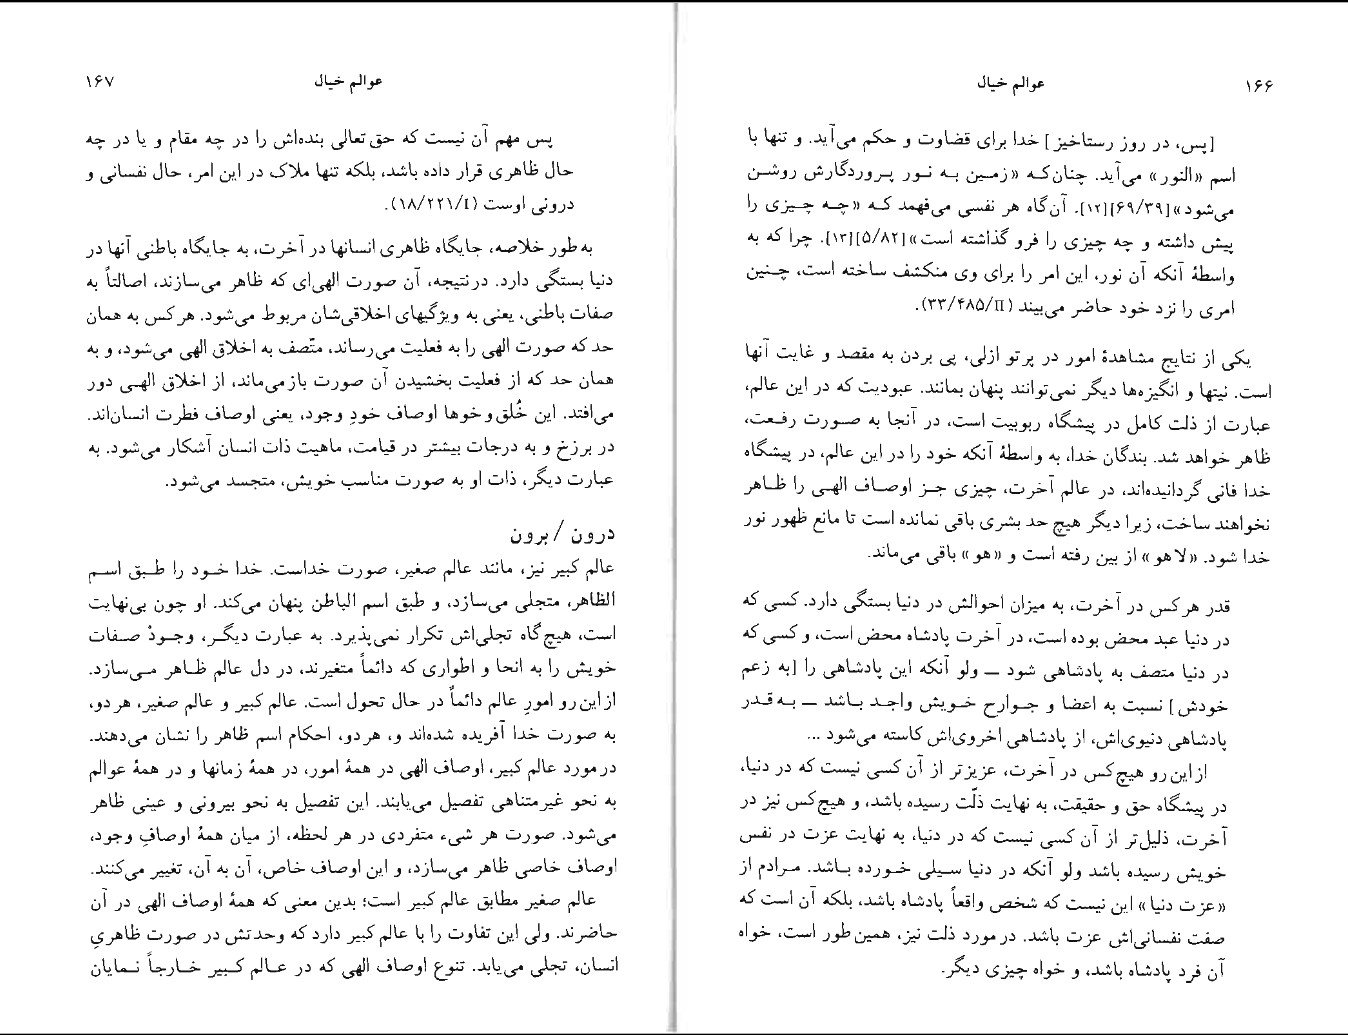 ۱۶۶
عوالم خیال
[پس، در روز رستاخیز] خدا برای قضاوت و حکم می‌آید. و تنها با
اسم «النور» می‌آید. چنان‌که «زمین به نور پروردگارش روشن
می‌شود»[۶۹/۳۹][۱۲]. آن‌گاه هر نفسی می‌فهمد که «چه چیزی را
پیش داشته و چه چیزی را فرو گذاشته است»[۵/۸۲][۱۳]. چرا که به
واسطهٔ آنکه آن نور، این امر را برای وی منکشف ساخته است، چنین
امری را نزد خود حاضر می‌بیند (II/۳۳/۴۸۵).
یکی از نتایج مشاهدهٔ امور در پرتو ازلی، پی بردن به مقصد و غایت آنها
است. نیتها و انگیزه‌ها دیگر نمی‌توانند پنهان بمانند. عبودیت که در این عالم،
عبارت از ذلت کامل در پیشگاه ربوبیت است، در آنجا به صورت رفعت،
ظاهر خواهد شد. بندگان خدا، به واسطهٔ آنکه خود را در این عالم، در پیشگاه
خدا فانی گردانیده‌اند، در عالم آخرت، چیزی جز اوصاف الهی را ظاهر
نخواهند ساخت، زیرا دیگر هیچ حد بشری باقی نمانده است تا مانع ظهور نور
خدا شود. «لاهو» از بین رفته است و «هو» باقی می‌ماند.
قدر هر کس در آخرت، به میزان احوالش در دنیا بستگی دارد. کسی که
در دنیا عبد محض بوده است، در آخرت پادشاه محض است، و کسی که
در دنیا متصف به پادشاهی شود ـــ ولو آنکه این پادشاهی را [به زعم
خودش] نسبت به اعضا و جوارح خویش واجد باشد ـــ به قدر
پادشاهی دنیوی‌اش، از پادشاهی اخروی‌اش کاسته می‌شود ...
از این رو هیچ‌کس در آخرت، عزیزتر از آن کسی نیست که در دنیا،
در پیشگاه حق و حقیقت، به نهایت ذلّت رسیده باشد، و هیچ‌کس نیز در
آخرت، ذلیل‌تر از آن کسی نیست که در دنیا، به نهایت عزت در نفس
خویش رسیده باشد ولو آنکه در دنیا سیلی خورده باشد. مرادم از
«عزت دنیا» این نیست که شخص واقعاً پادشاه باشد، بلکه آن است که
صفت نفسانی‌اش عزت باشد. در مورد ذلت نیز، همین طور است، خواه
آن فرد پادشاه باشد، و خواه چیزی دیگر.
عوالم خیال
۱۶۷
پس مهم آن نیست که حق‌تعالی بنده‌اش را در چه مقام و یا در چه
حال ظاهری قرار داده باشد، بلکه تنها ملاک در این امر، حال نفسانی و
درونی اوست (I/۱۸/۲۲۱).
به طور خلاصه، جایگاه ظاهری انسانها در آخرت، به جایگاه باطنی آنها در
دنیا بستگی دارد. درنتیجه، آن صورت الهی‌ای که ظاهر می‌سازند، اصالتاً به
صفات باطنی، یعنی به ویژگیهای اخلاقی‌شان مربوط می‌شود. هرکس به همان
حد که صورت الهی را به فعلیت می‌رساند، متّصف به اخلاق الهی می‌شود، و به
همان حد که از فعلیت بخشیدن آن صورت بازمی‌ماند، از اخلاق الهی دور
می‌افتد. این خُلق و خوها اوصاف خودِ وجود، یعنی اوصاف فطرت انسان‌اند.
در برزخ و به درجات بیشتر در قیامت، ماهیت ذات انسان آشکار می‌شود. به
عبارت دیگر، ذات او به صورت مناسب خویش، متجسد می‌شود.
درون / برون
عالم کبیر نیز، مانند عالم صغیر، صورت خداست. خدا خود را طبق اسم
الظاهر، متجلی می‌سازد، و طبق اسم الباطن پنهان می‌کند. او چون بی‌نهایت
است، هیچ‌گاه تجلی‌اش تکرار نمی‌پذیرد. به عبارت دیگر، وجودْ صفات
خویش را به انحا و اطواری که دائماً متغیرند، در دل عالم ظاهر می‌سازد.
از این رو امورِ عالم دائماً در حال تحول است. عالم کبیر و عالم صغیر، هر دو،
به صورت خدا آفریده شده‌اند و، هر دو، احکام اسم ظاهر را نشان می‌دهند.
در مورد عالم کبیر، اوصاف الهی در همهٔ امور، در همهٔ زمانها و در همهٔ عوالم
به نحو غیرمتناهی تفصیل می‌یابند. این تفصیل به نحو بیرونی و عینی ظاهر
می‌شود. صورت هر شیء متفردی در هر لحظه، از میان همهٔ اوصافِ وجود،
اوصاف خاصی ظاهر می‌سازد، و این اوصاف خاص، آن به آن، تغییر می‌کنند.
عالم صغیر مطابق عالم کبیر است؛ بدین معنی که همهٔ اوصاف الهی در آن
حاضرند. ولی این تفاوت را با عالم کبیر دارد که وحدتش در صورت ظاهریِ
انسان، تجلی می‌یابد. تنوع اوصاف الهی که در عالم کبیر خارجاً نمایان